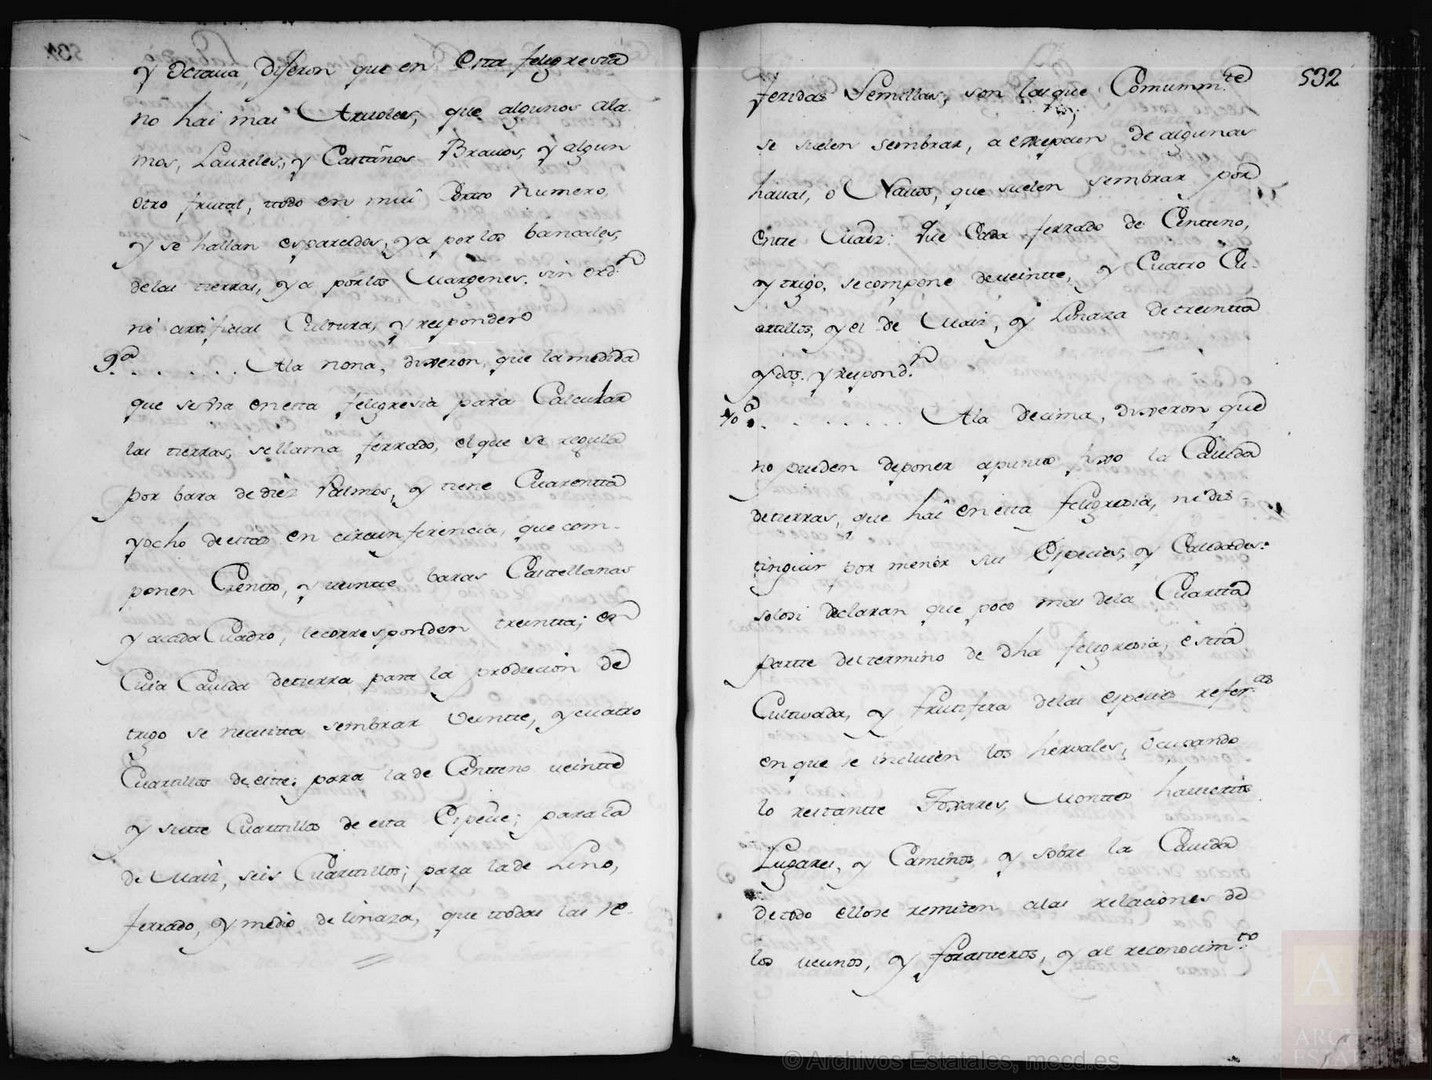 y Octaua, dijeron que en esta feligresia
no hai mas Aruoles, que algunos ala
mos, Laureles, y Castaños Brauos, y algun
otro frutal, ttodo en mui Corto Numero,
y se hallan esparcidos, ya por los bancales,
delas tierras, ya por los Margenes, sin ord.n
ni artificial Cultura, y respondero
9a . . . . . . Ala nona, dixeron, que la medida
que se usa en esta feligresia para Calcular
las tierras, se llama ferrado, el que se regula
por bara de diez Palmos, y tiene Cuarentta
y ocho de estas en circunferencia, que com-
ponen Ciento, y veinte baras Castellanas
y acada Cuadro, le corresponden treintta; en
Cuia Cauida de tierra para la produccion de
trigo se necesitta sembrar Veintte, y cuatro
Cuartillos de este; para la de Centteno veintte
y siette Cuarttillos de esta Especie; para la
de Maiz, seis Cuarttillos; para la de Lino,
ferrado, y medio de linaza, que ttodas las re-
532
feridas Semillas, son las que Comunm.te
se suelen sembrar, a excepcion de algunas
hauas, o Nauos, que suelen sembrar por
entre Maiz: Que Cada ferrado de Centteno,
y trigo, se compone de veintte, y Cuatro Cu-
artillos, y el de Maiz, y Linaza de treintta
y dos y respond.n
10a . . . . . . . Ala decima, dixeron que
no pueden deponer apunto fixo la Cauida
de tierras, que hai en esta feligresia, ni dis-
tinguir por menor sus Especies, y Calidades:
solo si declaran que poco mas dela Cuartta
partte del termino de dha feligresia, esttá
Cultiuada, y fructifera delas especies refer.as
en que se incluien los hervales, Ocupando
lo restantte Toxares, Montes hauierttos
Lugares, y Caminos, y sobre la Cauida
de todo ello se remiten alas relaciones de
los vecinos, y forasteros, y al reconocim.to
© Archivos Estatales, mecd.es